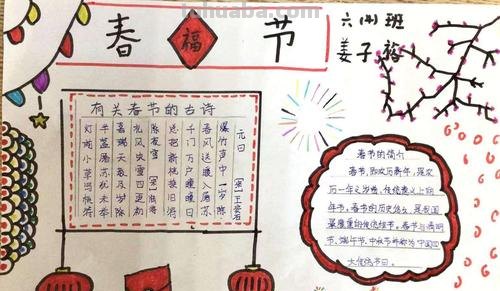 tuhuaba.com
春 福 节
六(4)班
姜子
有关春节的古诗
元日
[宋]王安石
爆竹声中一岁除
春风送暖入屠苏
千门万户曈曈日
总把新桃换旧符
除夜雪 [宋]陆游
北风吹雪四更初
嘉瑞天教及岁除
半盏屠苏犹未举
灯前小草写桃符
春节的简介
春节,即农历新年,是农
历一年之岁首、传统意义上的
年节。春节的历史悠久,是我国
最隆重的传统佳节。春节与清明
节、端午节、中秋节并称为中国四
大传统节日。